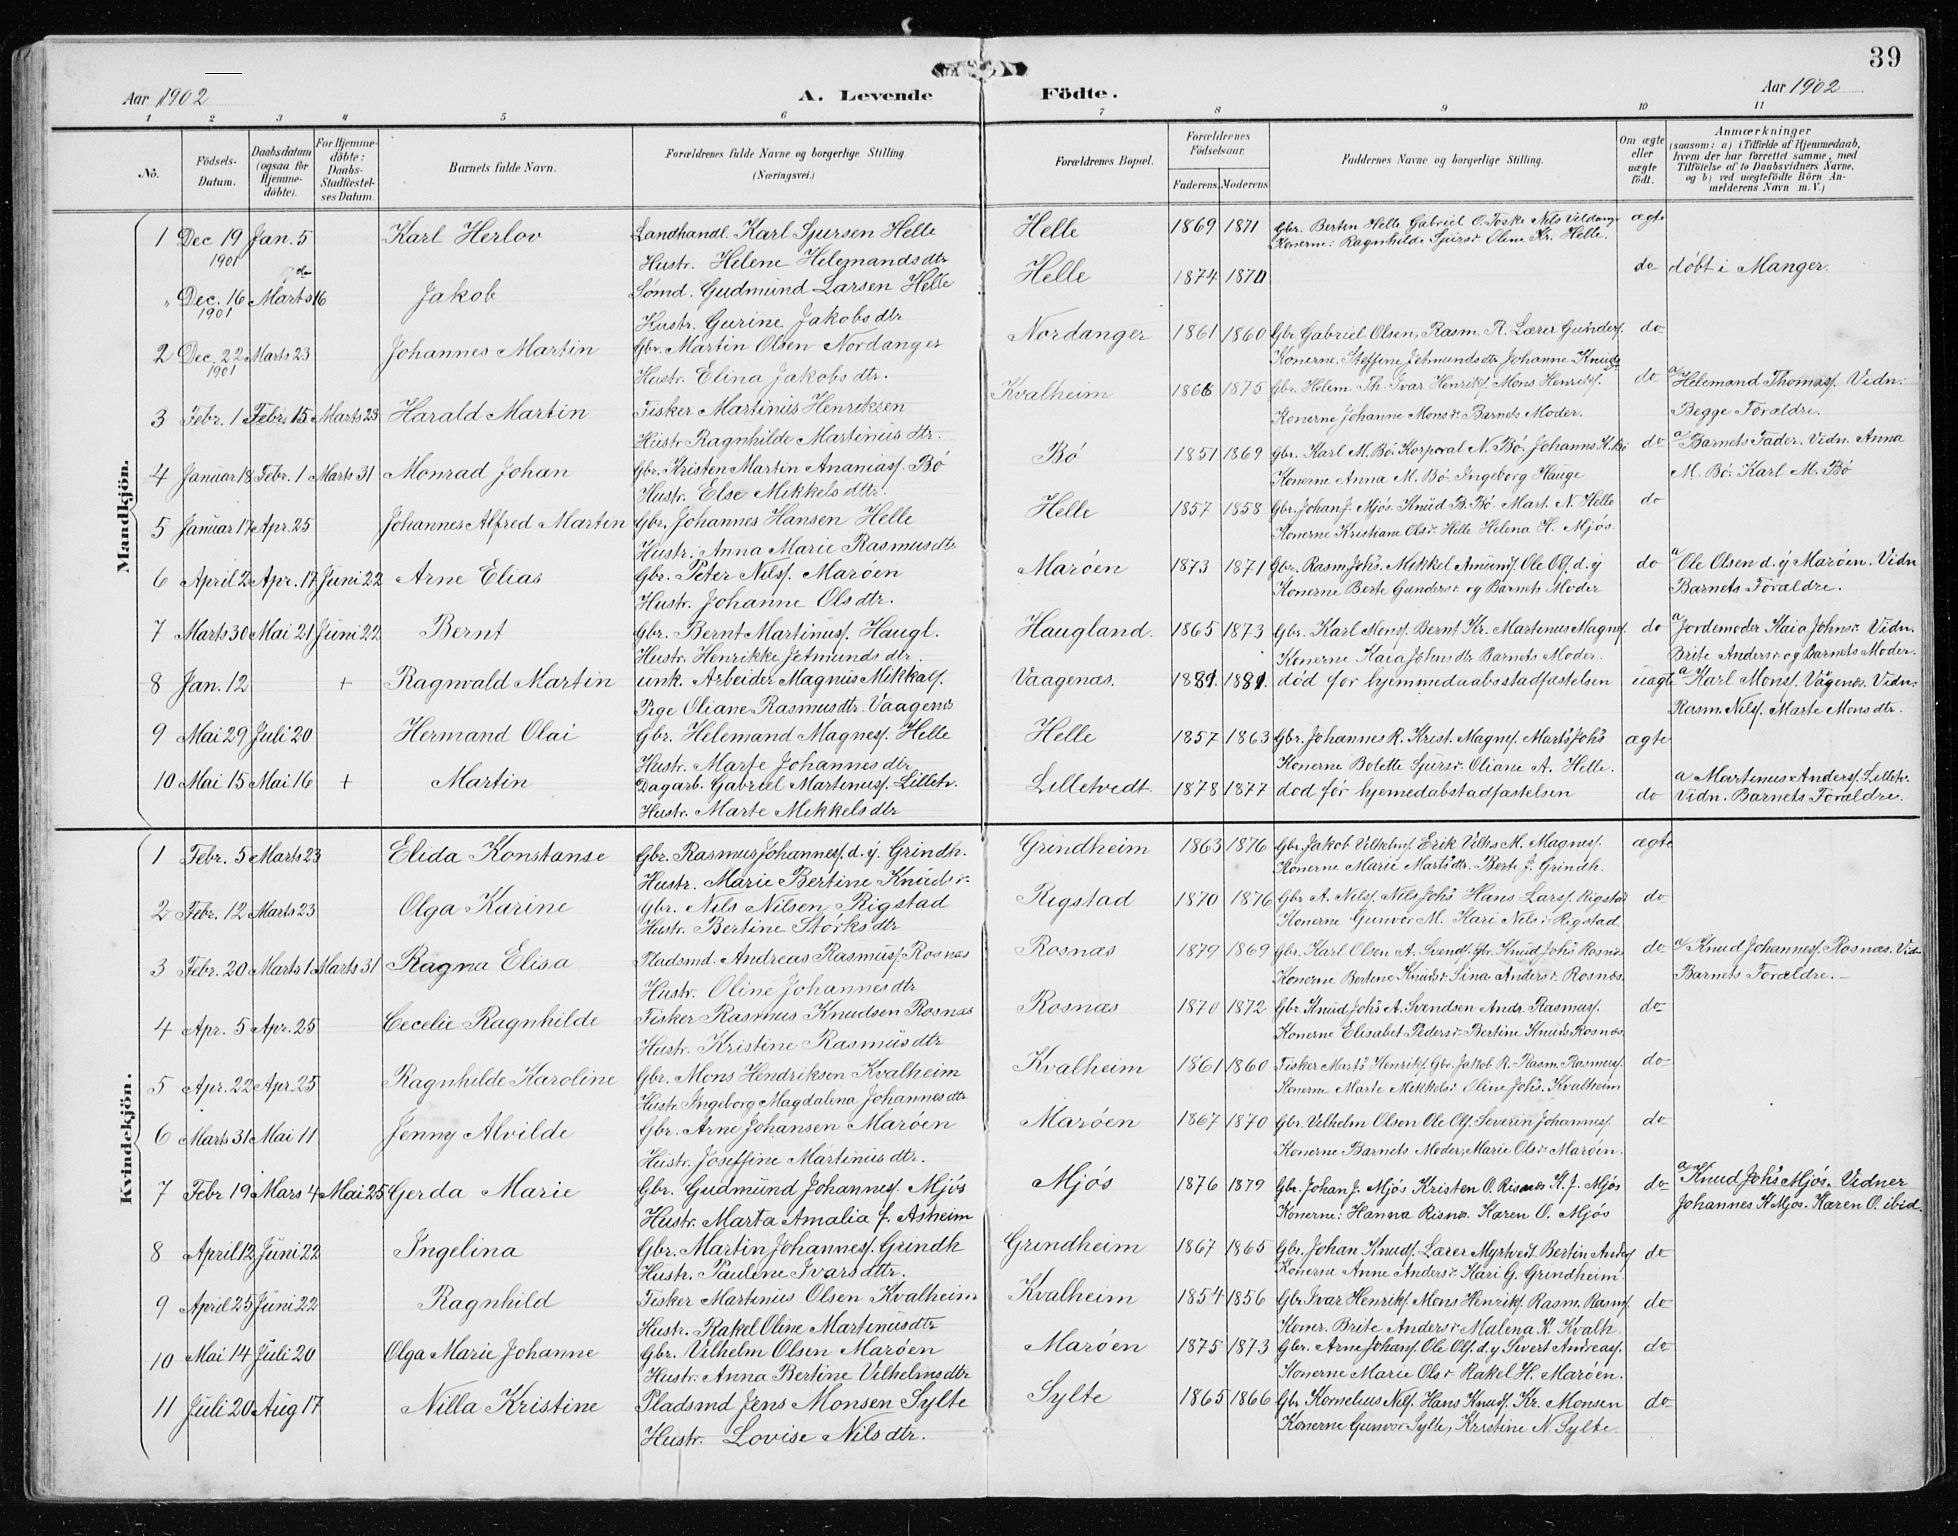 39
Aar 1902 A. Levende Födte. Aar 1902
1 2 3 4 5 6 7 8 9 10 11
No. Födsels-Datum. Daabsdatum (ogsaa for Hjemmedöbte). For Hjemmedöbte: Daabs-Stadfæstelses Datum. Barnets fulde Navn. Forældrenes fulde Navne og borgerlige Stilling (Næringsvei.) Forældrenes Bopæl. Forældrenes Födselsaar. Faderens Moderens Faddernes Navne og borgerlige Stilling. Om ægte eller uægte födt. Anmærkninger (saasom: a) i Tilfælde af Hjemmedaab, hvem der har forrettet samme, med Tilföielse af to Daabsvidners Navne, og b) ved uægtefödte Börn Anmelderens Navn m. V.)
Mandkjön.
1 Dec 19 1901 Jan. 5 Karl Herlov Landhandl. Karl Sjursen Helle Helle 1869 1871 Gbr. Bertin Helle Gabriel O. Toska Nils ægte
Hustr. Helene Helemandsdtr Konerne: Ragnhilde Sjursdr Oline Kr. Helle.
" Dec. 16 1901 Marts 16 Jakob Sømd. Gudmund Larsen Helle Helle 1874 1870 do døbt i Manger.
Hustr. Gurine Jakobsdtr
2 Dec. 22 1901 Marts 23 Johannes Martin Gbr. Martin Olsen Nordanger Nordanger 1861 1860 Gbr Gabriel Olsen, Rasm. R. Lærer Gunders. do
Hustr. Elina Jakobsdtr. Konerne. Steffine Jetmundsdtr Johanne Knuds
3 Febr. 1 Febr 15 Marts 23 Harald Martin Fisker Martinus Henriksen Kvalheim 1866 1875 Gbr. Helem. Th. Ivar Henriks. Mons Henriks. do a/ Helemand Thomass. Vidn:
Hustr Ragnhilde Martinusdtr. Konerne Johanne Monsdr Barnets Moder. Begge Forældre.
4 Januar 18 Febr. 1 Marts 31 Monrad Johan Gbr. Kristen Martin Ananiass. Bø Bø 1851 1869 Gbr. Karl M. Bø. Korporal N. Bø. Johanns K. do a/ Barnets Fader. Vidn. Anna
Hustr. Else Mikkelsdttr. Konerne Anna M. Bø Ingeborg Hauge M. Bø. Karl M. Bø
5 Januar 17 Apr. 25 Johannes Alfred Martin Gbr. Johannes Hansen Helle Helle 1857 1858 Gbr. Johan J. Mjøs Knud B. Bø Mart. N. Helle do
Hustr. Anna Marie Rasmusdtr Konerne Kristiane Olsdr Helle Helena H. Mjøs.
6 April 2 Apr. 17 Juni 22 Arne Elias Gbr. Peter Nilss. Marøen Marøen 1873 1871 Gbr. Rasm Johs. Mikkel Amunds. Ole Ols. d. y do a Ole Olsen d. y Marøen. Vidn
Hustr. Johanne Olsdtr. Konerne Berte Gundersdr og Barnets Moder Barnets Forældre.
7 Marts 30 Mai 21 Juni 22 Bernt Gbr. Bernt Martinuss. Haugl. Haugland. 1865 1873 Gbr. Karl Mons. Bernt Kr. Martinus Magns. do a Jordemoder Kaia Johnsr. Vidn.
Hustr. Henrikke Jetmundsdtr. Konerne Kaia Johnsdtr Barnets Moder. Brite Andersdr og Barnets Moder.
8 Jan. 12 + Ragnvald Martin unk. Arbeider Magnus Mikkels. Vaagenæs. 1881. 1881. død før hjemmedaabsstadfæstelsen uægte a Karl Monss. Vågenæs. Vidn:
Pige Oliane Rasmusdtr. Vaagenes Rasm. Nils. Marte Monsdtr.
9 Mai 29 Juli 20 Hermand Olai Gbr. Helemand Magness. Helle Helle 1857 1863 Gbr. Johannes R. Krist. Magns. Marts Johs ægte
Hustr. Marte Johannesdtr Konerne Bolette Sjursdr Oliane A. Helle.
10 Mai 15 Mai 16 + Martin Dagarb. Gabriel Martinuss. Lilletv. Lilletvedt. 1878 1877 død før hjemedabstadfæstelsen do a Martinus Anders. Lilletv.
Hustr. Marte Mikkelsdtr Vidn. Barnets Forældre.
Kvindekjön.
1 Febr. 5 Marts 23 Elida Konstanse Gbr. Rasmus Johanness. d. y. Grindh. Grindheim 1863 1876 Gbr Jakob Vilhelms. Erik Vilhs M. Magness. ægte
Hustr. Marie Bertine Knudsdr Konerne Marie Martsdtr. Berte J. Grindh.
2 Febr. 12 Marts 23 Olga Karine Gbr. Nils Nilsen Rigstad Rigstad 1870 1876 Gbr A. Nilss. Nils Johs Hans Larss. Rigstad do
Hustr. Bertine Størksdtr Konerne Gunvor M. Kari Nilsdr Rigstad
3 Febr. 20 Marts 1 Marts 31 Ragna Elisa Pladsmd. Andreas Rasmuss. Rosnæs Rosnæs 1879 1869 Gbr. Karl Olsen A. Svends. Gbr. Knud Johs Rosnæs do a/ Knud Johanness. Rosnæs. Vidn
Hustr. Oline Johannesdtr Konerne Bertine Knudsdr Sina Andersdr Rosnæs. Barnets Forældre.
4 Apr. 5 Apr. 25 Cecelie Ragnhilde Fisker Rasmus Knudsen Rosnæs Rosnæs 1870 1872 Gbr. Knud Johs A. Svendsen Andr. Rasmuss. do
Hustr. Kristine Rasmusdtr Konerne Elisabet Pedersdr Bertine Knuds Rosnæs.
5 Apr. 22 Apr. 25 Ragnhilde Karoline Gbr. Mons Hendriksen Kvalheim Kvalheim 1861 1860 Fisker Marts Henriks. Gbr. Jakob R. Rasm. Rasmuss. do
Hustr. Ingeborg Magdalena Johannesdtr Konerne Marte Mikkelsdr Oline Johs. Kvalheim
6 Marts 31 Mai 11 Jenny Alvilde Gbr. Arne Johansen Marøen Marøen 1867 1870 Gbr. Vilhelm Olsen Ole Ols. Severin Johanness. do
Hustr. Joseffine Martinusdtr. Konerne Barnets Moder, Marie Olsdr Marøen.
7 Febr 19 Mars 4 Mai 25 Gerda Marie Gbr. Gudmund Johanness. Mjøs Mjøs 1876 1879 Gbr. Johan J. Mjøs Kristen O. Risnes K. J. Mjøs do a/ Knud Johs Mjøs. Vidner
Hustr. Marta Amalia f. Asheim Konerne: Hanna Risnes. Karen O. Mjøs Johannes K Mjøs. Karen O. ibid.
8 April 12 Juni 22 Ingelina Gbr. Martin Johanness. Grindh Grindheim 1867 1865 Gbr. Johan Knuds. Lærer Myrtvedt. Bertin Anders do
Hustr. Pauline Ivarsdttr. Konerne Anne Andersdr Kari G. Grindheim.
9 April 25 Juni 22 Ragnhild Fisker Martinus Olsen Kvalheim Kvalheim 1854 1856 Gbr Ivar Henriks. Mons Henriks. Rasm. Rasms. do
Hustr. Rakel Oline Martinusdtr Koner. Brite Andersdr Malena K. Kvalh.
10 Mai 14 Juli 20 Olga Marie Johanne Gbr. Vilhelm Olsen Marøen Marøen 1875 1873 Gbr. Arne Johans. Ole Ols. d. y Sivert Andreass. do
Hustr. Anna Bertine Vilhelmsdtr Konerne Marie Olsdr Rakel H. Marøen.
11 Juli 20 Aug 17 Nilla Kristine Pladsmd Jens Monsen Sylte Sylte 1865 1866 Gbr Kornelius Nils. Hans Knuds. Kr. Monsen do
Hustr. Lovise Nilsdtr. Konerne Gunvor Sylte, Kristine N. Sylte.